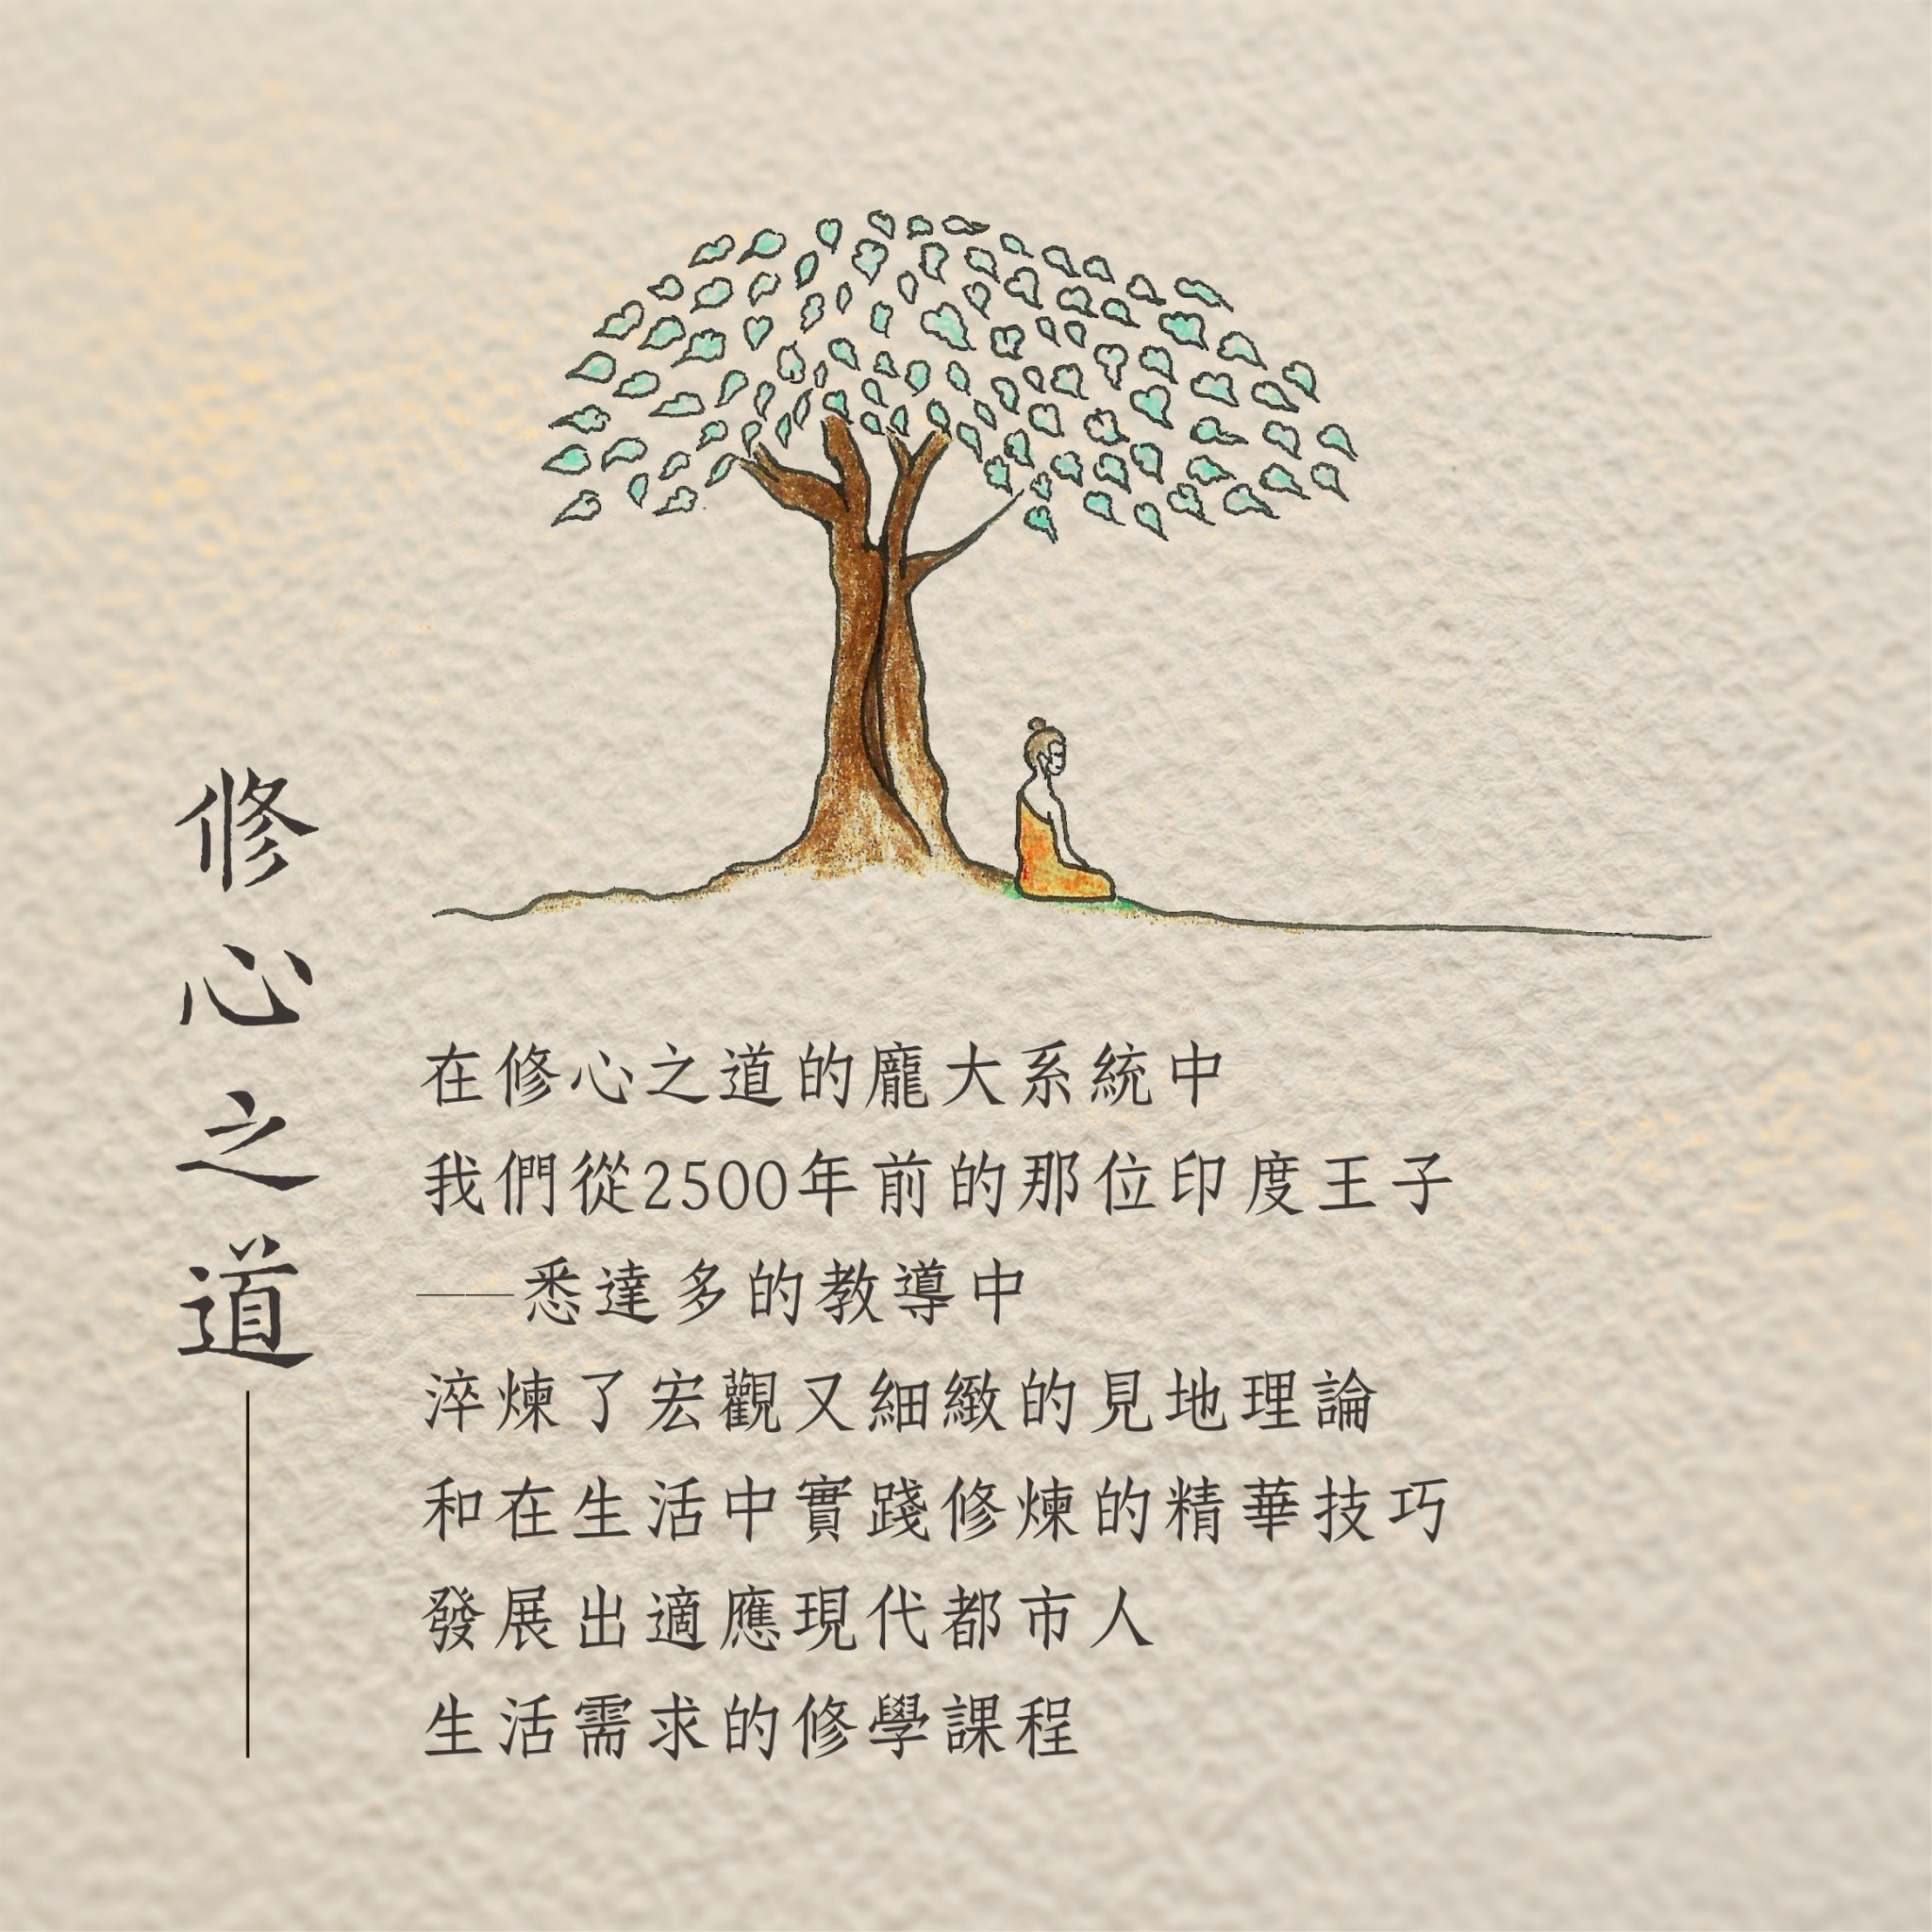 修心之道
在修心之道的龐大系統中
我們從2500年前的那位印度王子
——悉達多的教導中
淬煉了宏觀又細緻的見地理論
和在生活中實踐修煉的精華技巧
發展出適應現代都市人
生活需求的修學課程